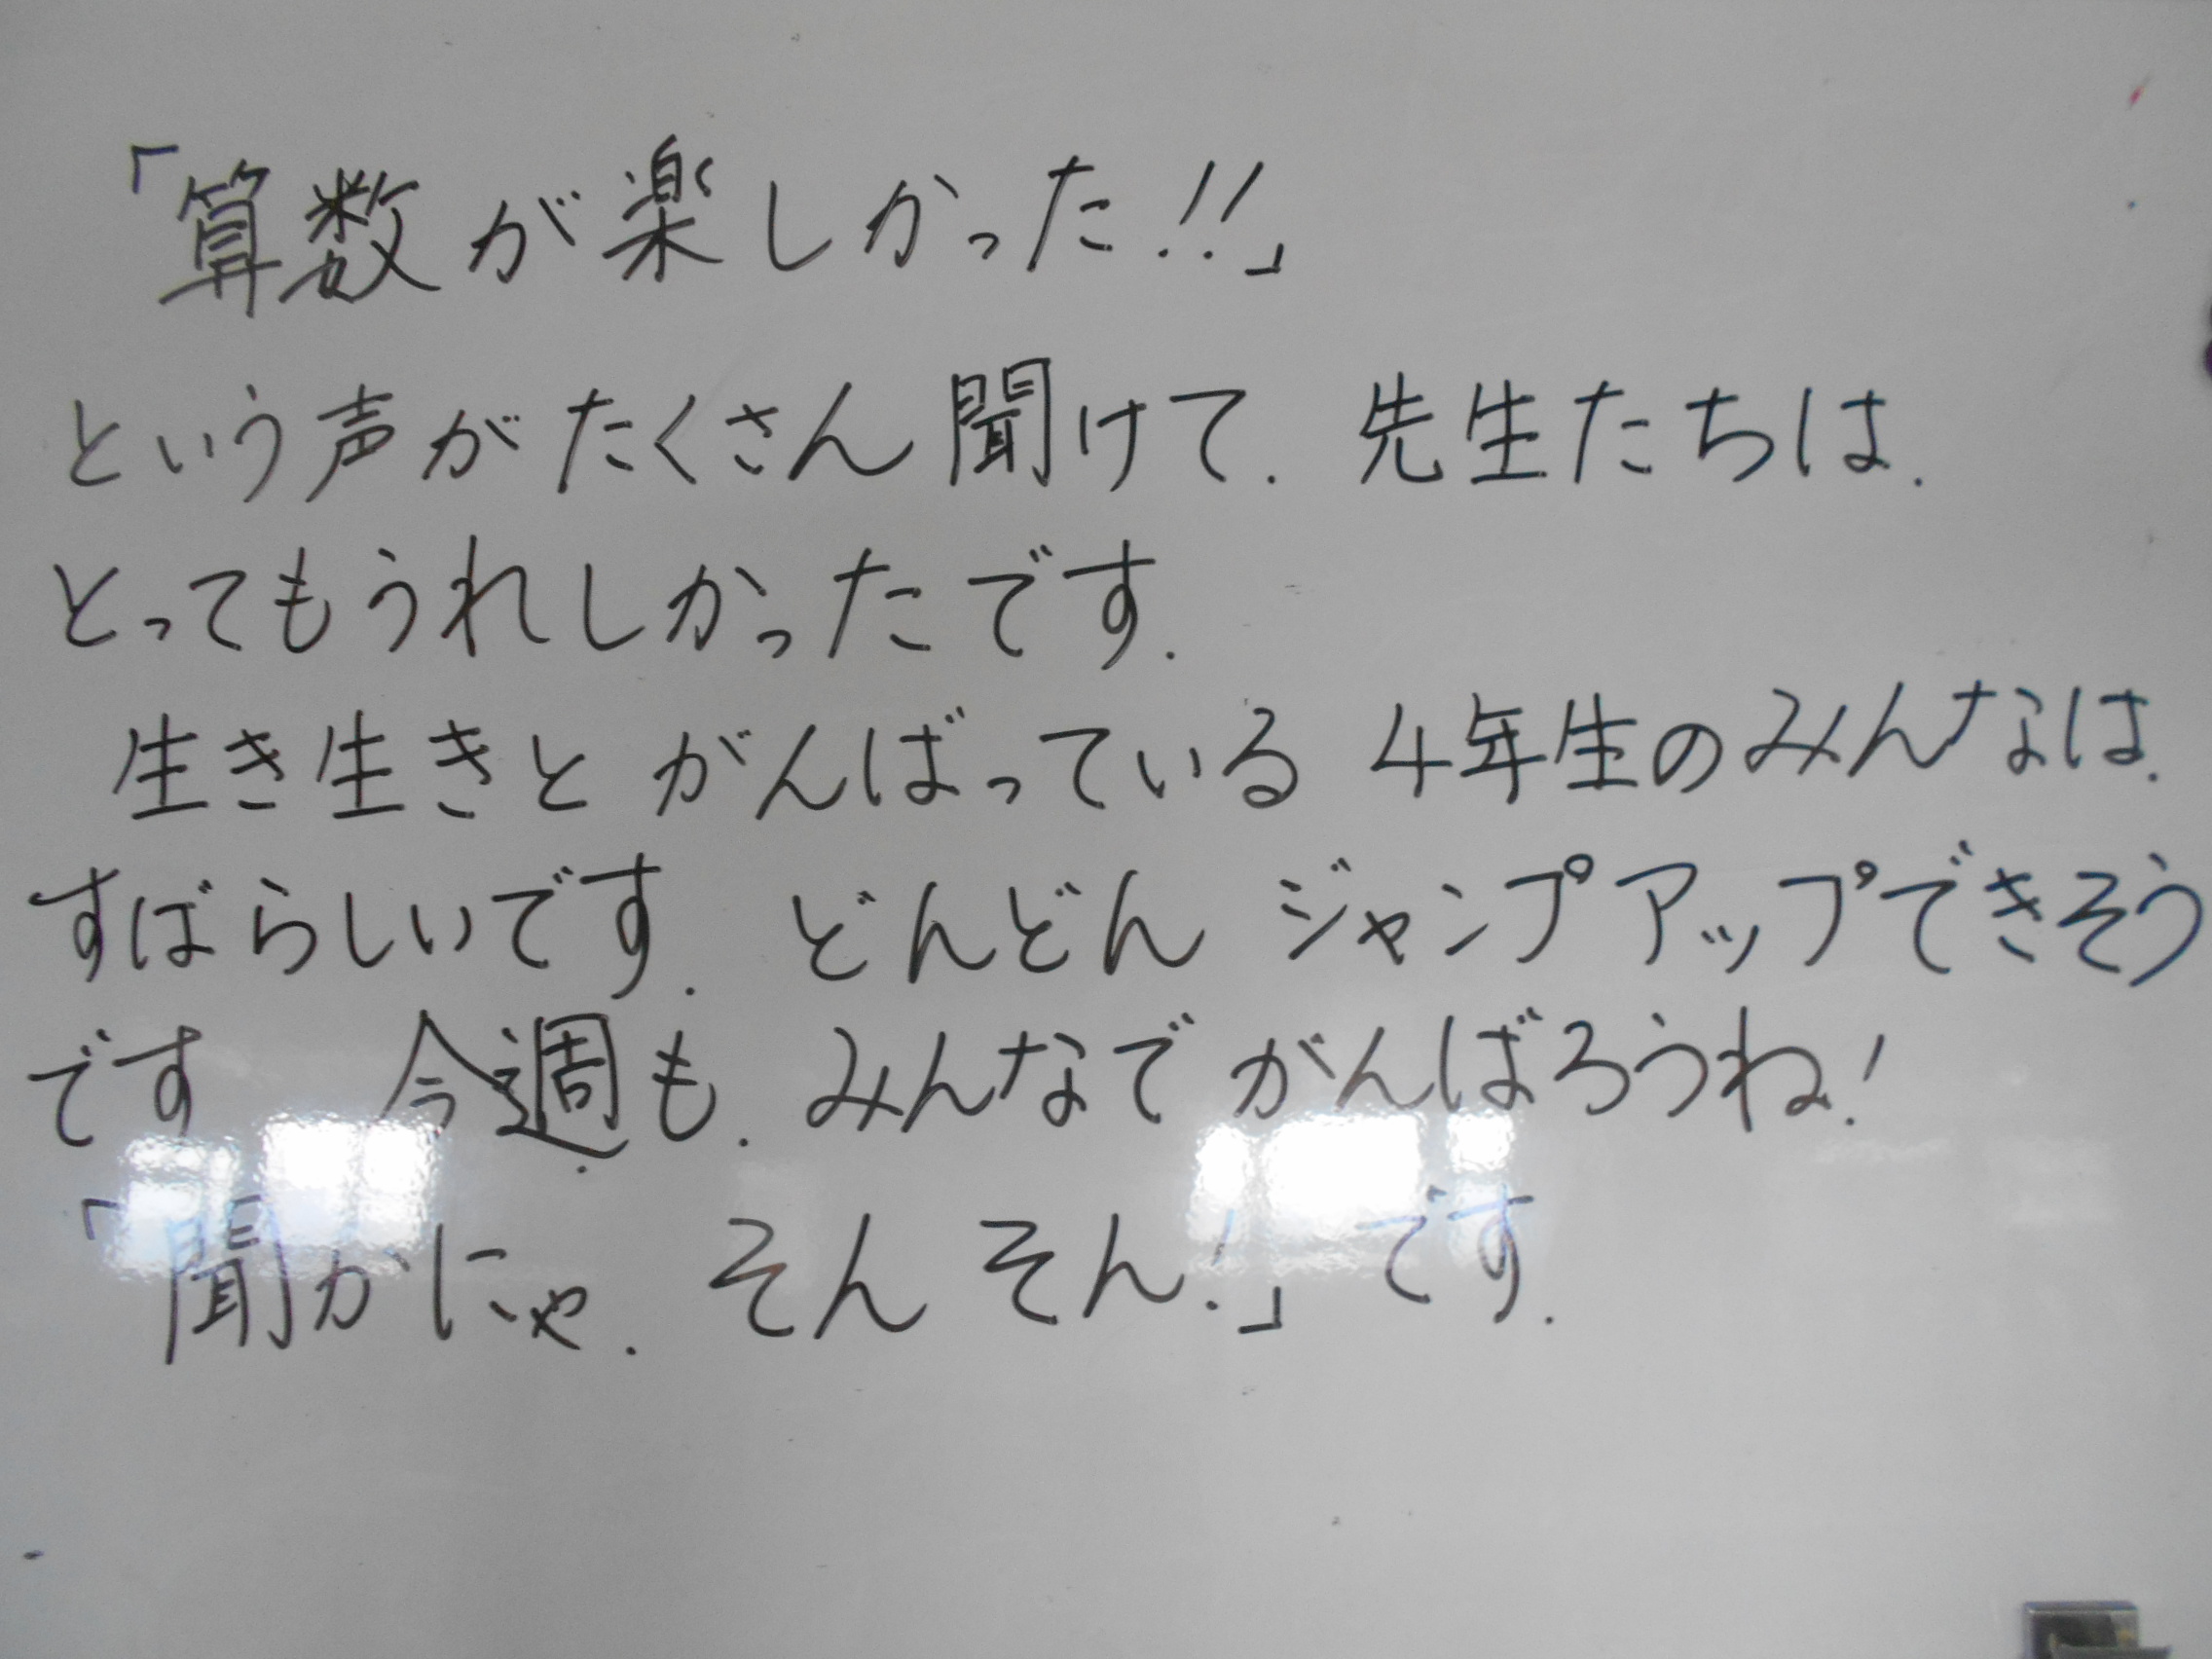 「算数が楽しかった!!」
という声がたくさん聞けて. 先生たちは.
とってもうれしかったです.
生き生きと がんばっている 4年生のみんなは.
すばらしいです. どんどん ジャンプアップできそう
です 今週も. みんなで がんばろうね!
「聞かにゃ. そん そん!」 です.